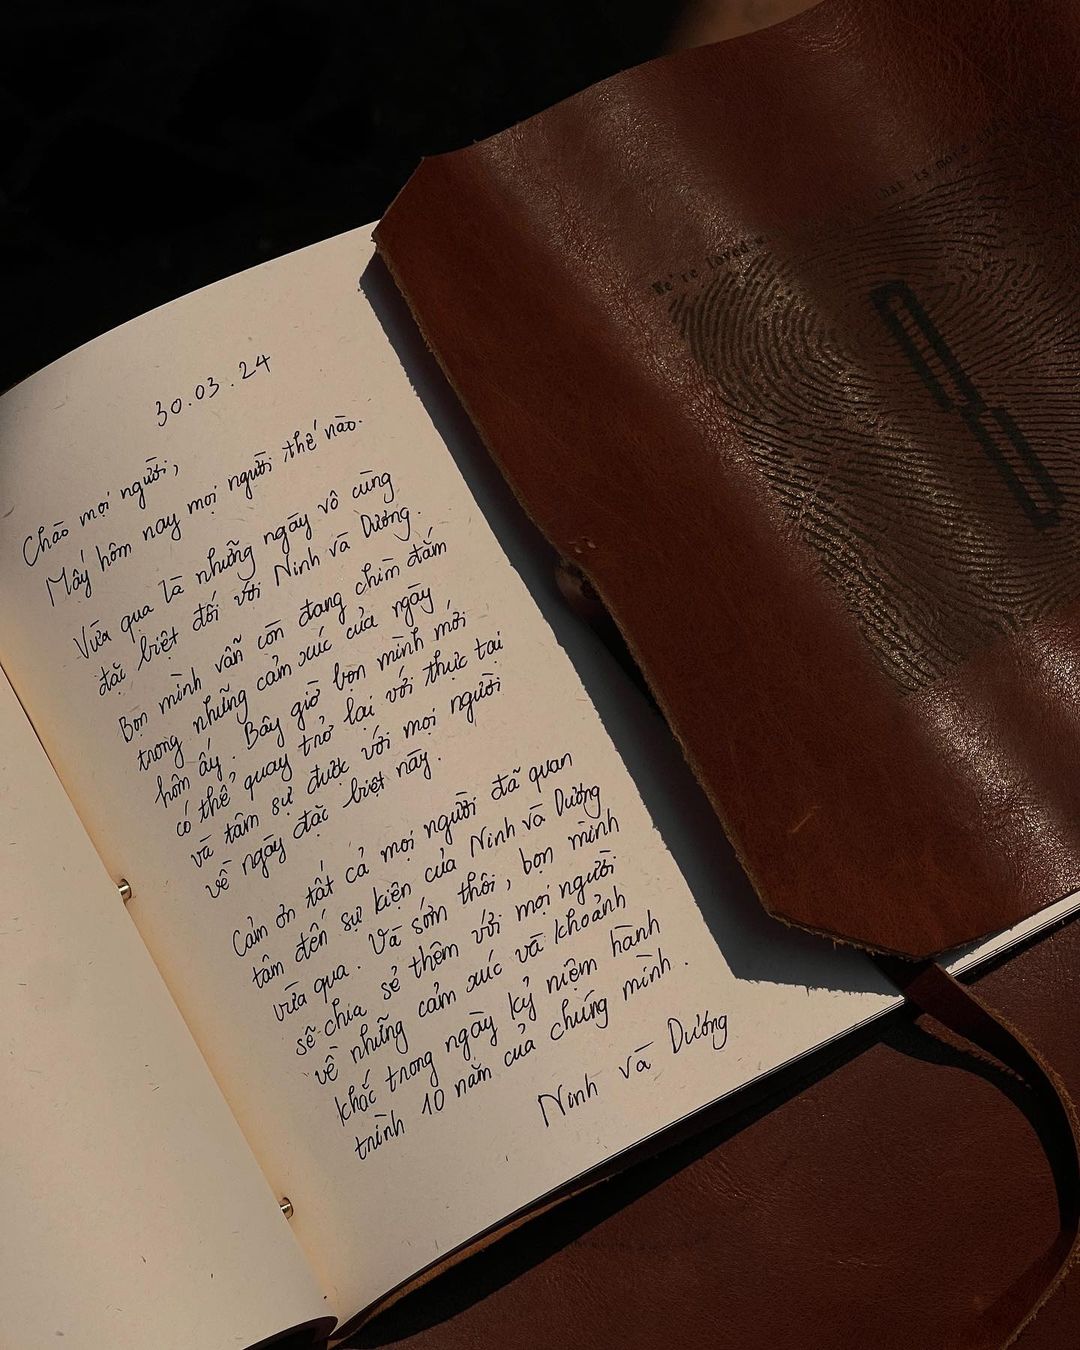 30.03.24
Chào mọi người,
Mấy hôm nay mọi người thế nào.
Vừa qua là những ngày vô cùng
đặc biệt đối với Ninh và Dương.
Bọn mình vẫn còn đang chìm đắm
trong những cảm xúc của ngày
hôm ấy. Bây giờ bọn mình mới
có thể quay trở lại với thực tại
và tâm sự được với mọi người
về ngày đặc biệt này.
Cảm ơn tất cả mọi người đã quan
tâm đến sự kiện của Ninh và Dương
vừa qua. Và sớm thôi, bọn mình
sẽ chia sẻ thêm với mọi người
về những cảm xúc và khoảnh
khắc trong ngày kỷ niệm hành
trình 10 năm của chúng mình.
Ninh và Dương
We're loved w
that is more